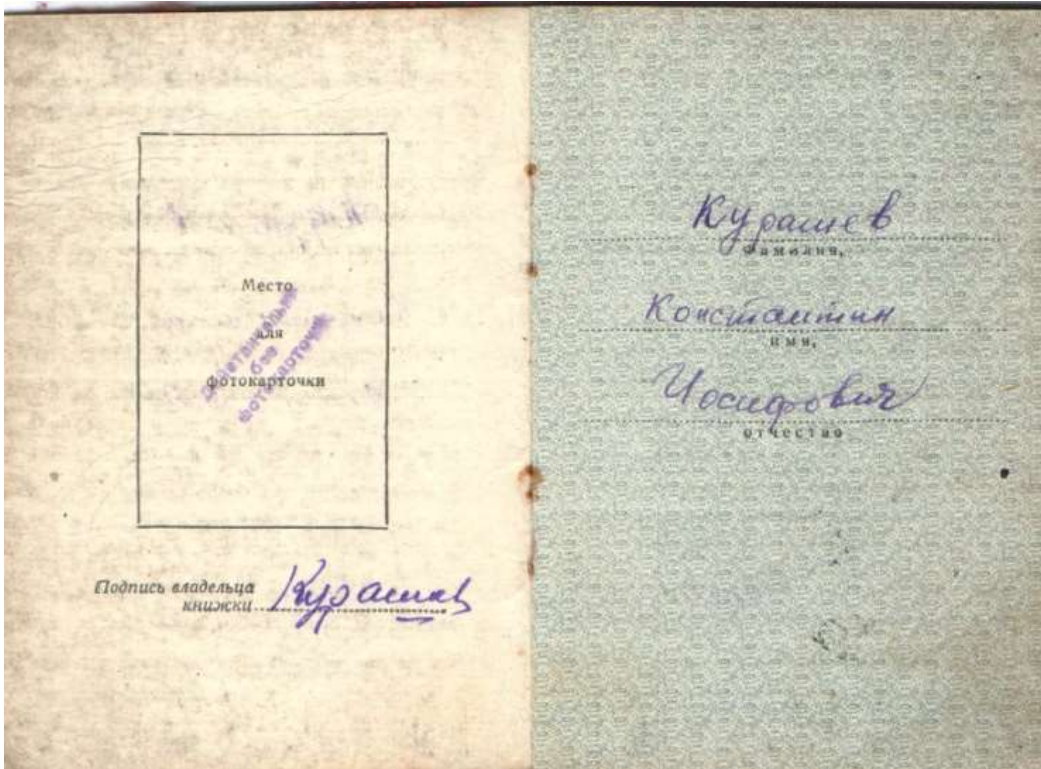 Место
для
фотокарточки
Действительно
без
фотокарточки
Подпись владельца
книжки Курашев
Курашев
Фамилия,
Константин
имя,
Иосифович
отчество